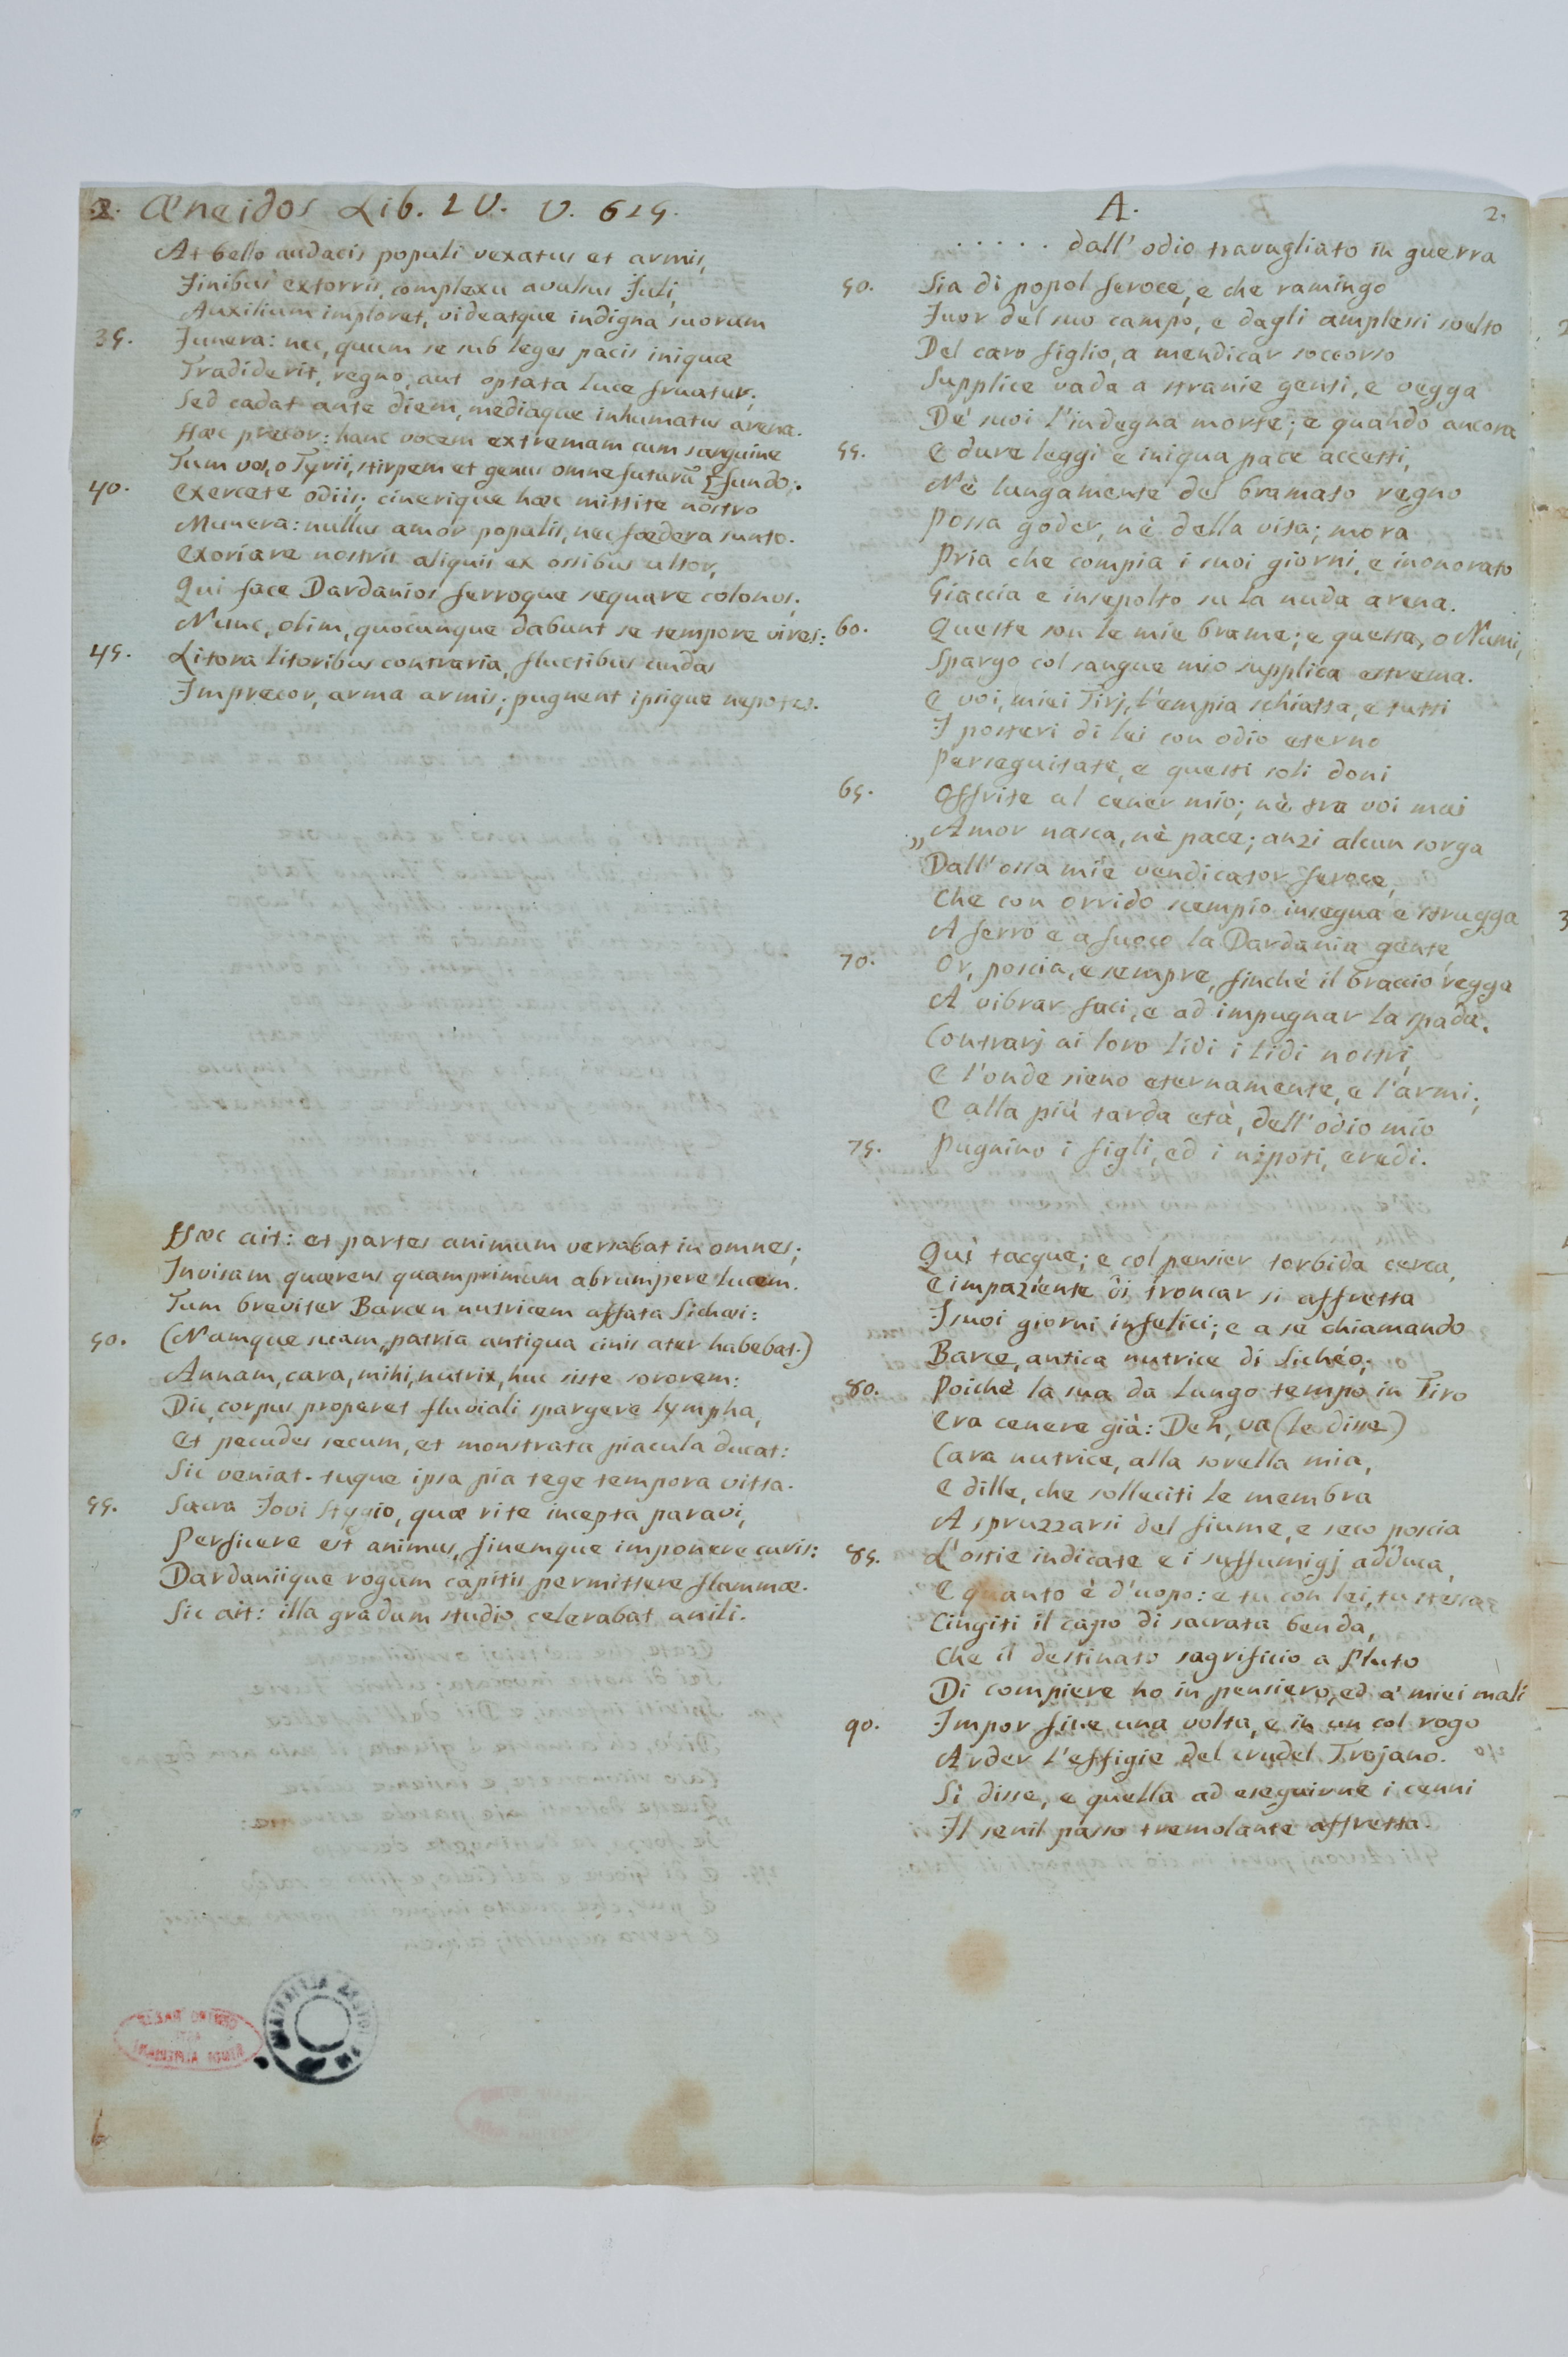 2. Æneidos Lib. IV. V. 615.
At bello audacis populi vexatus et armis,
Finibus extorris, complexu avulsus Juli,
Auxilium imploret, videatque indigna suorum
35. Funera: nec, quum se sub leges pacis iniquæ
Tradiderit, regno, aut optata luce fruatur;
Sed cadat ante diem, mediaque inhumatus arena.
Hæc precor: hanc vocem extremam cum sanguine
Tum vos, o Tyrii, stirpem et genus omne futurū [fundo.
40. Exercete odiis; cinerique hæc mittite nostro
Munera: nullus amor populis, nec fœdera sunto.
Exoriare nostris aliquis ex ossibus ultor,
Qui face Dardanios ferroque sequare colonos;
Nunc, olim, quocunque dabunt se tempore vires:
45. Litora litoribus contraria, fluctibus undas
Imprecor, arma armis; pugnent ipsique nepotes.
Hæc ait: et partes animum versabat in omnes;
Invisam quærens quamprimum abrumpere lucem.
Tum breviter Barcen nutricem affata Sichæi:
50. (Namque suam patria antiqua cinis ater habebat.)
Annam, cara, mihi, nutrix, huc siste sororem:
Dic, corpus properet fluviali spargere lympha,
Et pecudes secum, et monstrata piacula ducat:
Sic veniat. tuque ipsa pia tege tempora vitta.
55. Sacra Jovi Stygio, quæ rite incepta paravi,
Perficere est animus, finemque imponere curis:
Dardaniique rogum capitis permittere flammæ.
Sic ait: illa gradum studio celerabat anili.
A. 2.
. . . . . dall' odio travagliato in guerra
50. Sia di popol feroce, e che ramingo
Fuor del suo campo, e dagli amplessi svelto
Del caro figlio, a mendicar soccorso
Supplice vada a stranie genti, e vegga
De' suoi l'indegna morte; e quando ancora
55. E dure leggi e iniqua pace accetti,
Nè lungamente del bramato regno
Possa goder, nè della vita; mora
Pria che compia i suoi giorni, e inonorato
Giaccia e insepolto su la nuda arena.
60. Queste son le mie brame; e questa, o Numi,
Spargo col sangue mio supplica estrema.
E voi, miei Tirj, l'empia schiatta, e tutti
I posteri di lei con odio eterno
Perseguitate, e questi soli doni
65. Offrite al cener mio; nè tra voi mai
„ Amor nasca, nè pace; anzi alcun sorga
Dall'ossa mie vendicator feroce,
Che con orrido scempio insegua e strugga
A ferro e a fuoco la Dardania gente,
70. Or, poscia, e sempre, finchè il braccio regga
A vibrar faci, e ad impugnar la spada.
Contrarj ai loro lidi i lidi nostri
E l'onde sieno eternamente, e l'armi;
E alla più tarda età, dell'odio mio
75. Pugnino i figli, ed i nipoti, eredi.
Quì tacque; e col pensier torbida cerca,
E impaziente di troncar si affretta
I suoi giorni infelici; e a sè chiamando
Barce, antica nutrice di Sichéo;
80. Poichè la sua da lungo tempo in Tiro
Era cenere già: Deh, va (le disse)
Cara nutrice, alla sorella mia,
E dille, che solleciti le membra
A spruzzarsi del fiume, e seco poscia
85. L'ostie indicate e i suffumigj adduca,
E quanto è d'uopo: e tu con lei, tu stessa
Cingiti il capo di sacrata benda,
Che il destinato sagrificio a Pluto
Di compiere ho in pensiero, ed a' miei mali
90. Impor fine una volta, e in un col rogo
Arder l'effigie del crudel Trojano.
Sì disse, e quella ad eseguirne i cenni
Il senil passo tremolante affretta.